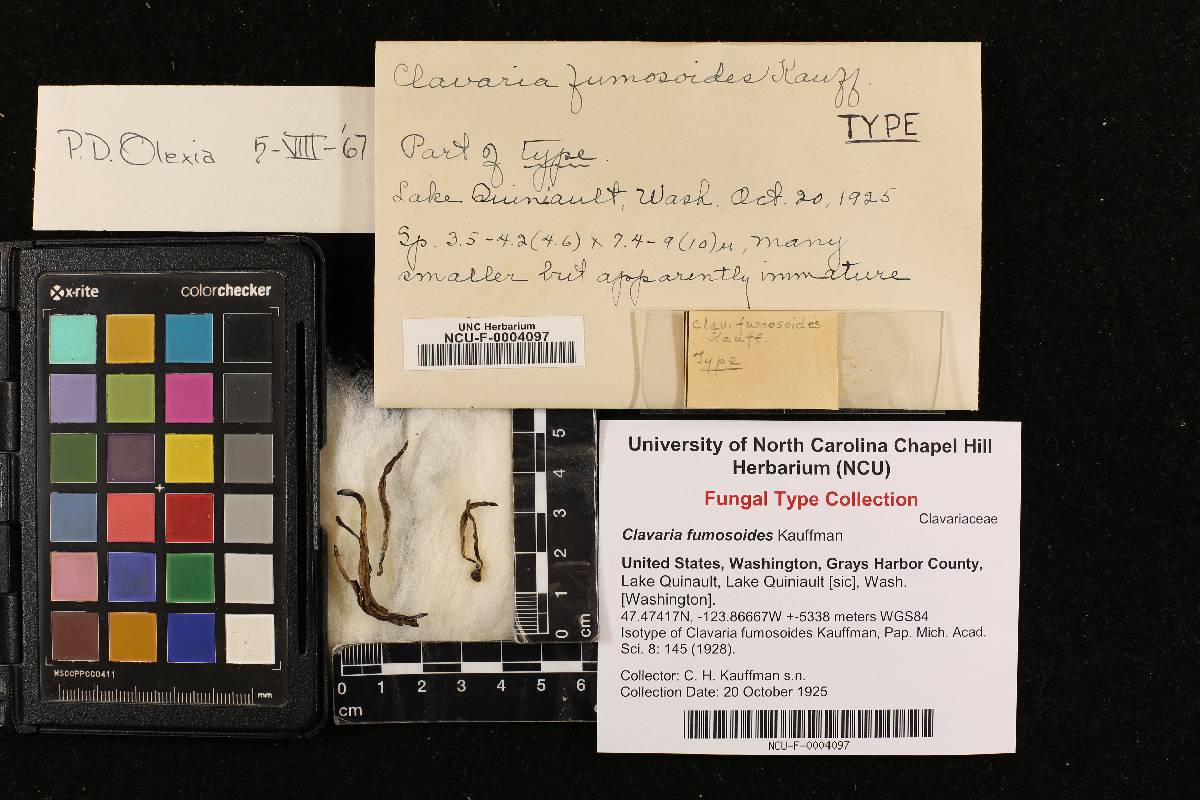 Clavaria fumosoides Kauff.
TYPE
Part of type.
Lake Quiniault, Wash. Oct. 20, 1925
Sp. 3.5-4.2(4.6) x 7.4-9(10)µ, many
smaller but apparently immature
P.D. Olexia 5-VIII-'67
UNC Herbarium
NCU-F-0004097
Clav. fumosoides
Kauff.
Type
x-rite colorchecker
MSCCPPCC0411
mm
5
4
3
2
1
0 cm
0 1 2 3 4 5 6
cm
University of North Carolina Chapel Hill
Herbarium (NCU)
Fungal Type Collection
Clavariaceae
Clavaria fumosoides Kauffman
United States, Washington, Grays Harbor County,
Lake Quinault, Lake Quiniault [sic], Wash.
[Washington].
47.47417N, -123.86667W +-5338 meters WGS84
Isotype of Clavaria fumosoides Kauffman, Pap. Mich. Acad.
Sci. 8: 145 (1928).
Collector: C. H. Kauffman s.n.
Collection Date: 20 October 1925
NCU-F-0004097